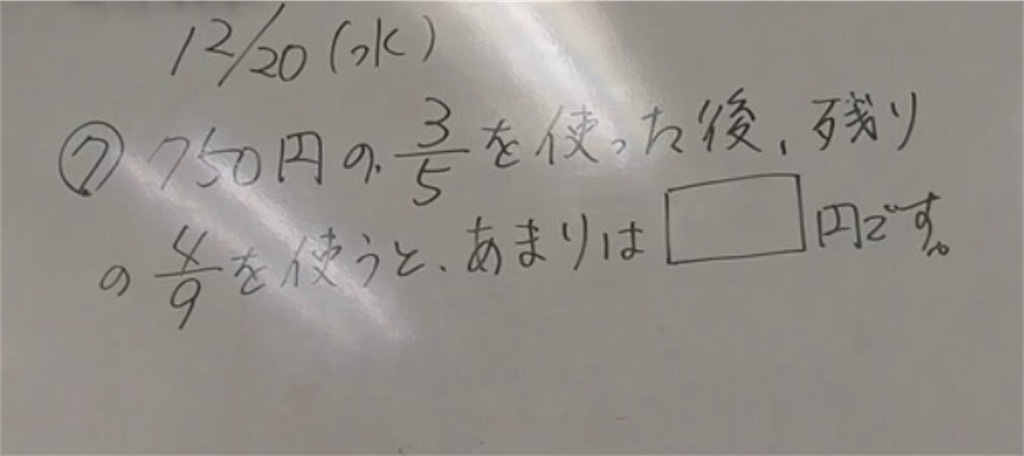 12/20(水)
⑦ 750円の 3/5 を使った後、残り
の 4/9 を使うと、あまりは □ 円です。